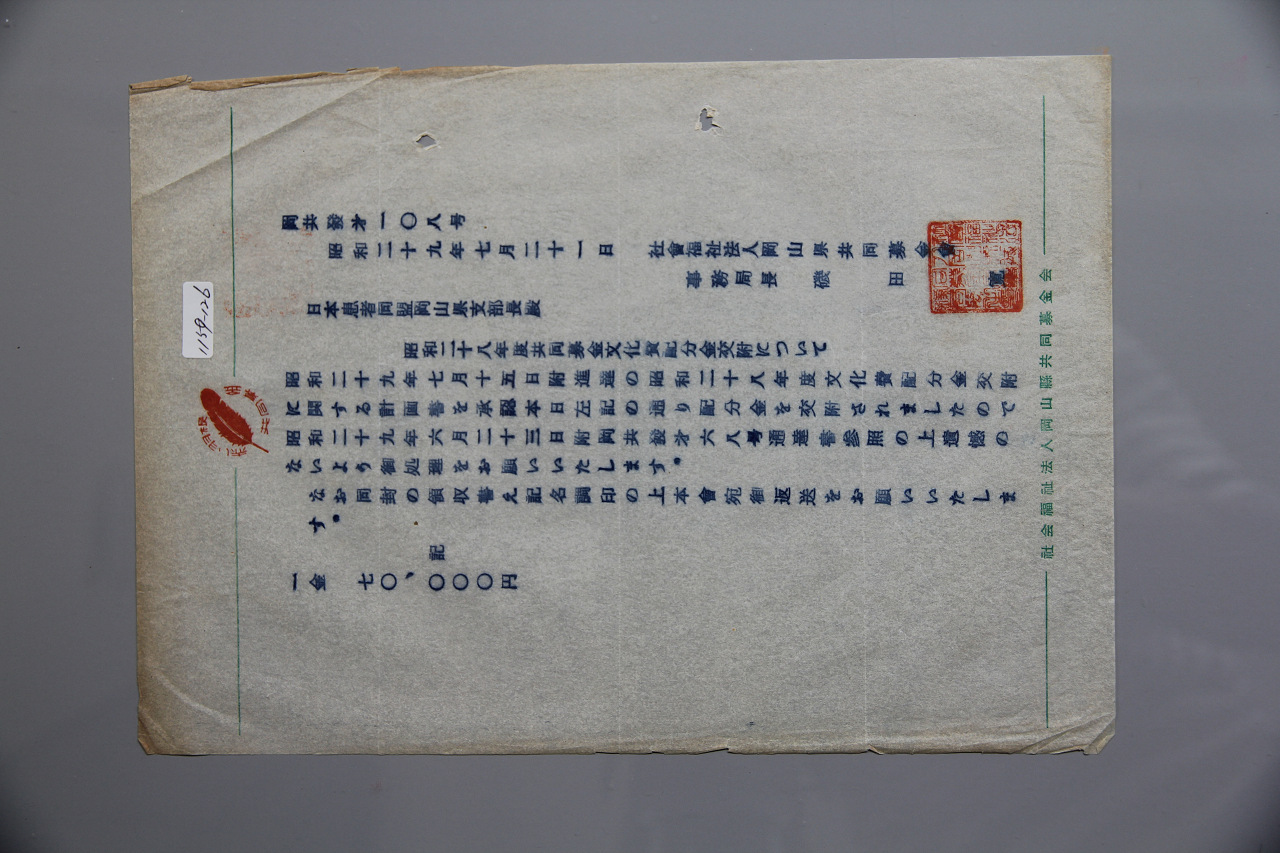 岡共發才一〇八号
昭和二十九年七月二十一日
社會福祉法人岡山県共同募金會
事務局長 磯田 寛
日本患者同盟岡山県支部長殿
昭和二十八年度共同募金文化費配分金交附について
昭和二十九年七月十五日附進達の昭和二十八年度文化費配分金交附
に関する計画書を承認本日左記の通り配分金を交附されましたので
昭和二十九年六月二十三日附岡共發才六八号通達書参照の上遺憾の
ないよう御処理をお願いいたします。
なお同封の領収書え記名調印の上本會宛御返送をお願いいたしま
す。
記
一金 七〇、〇〇〇円
社会福祉法人岡山縣共同募金会
1159-126